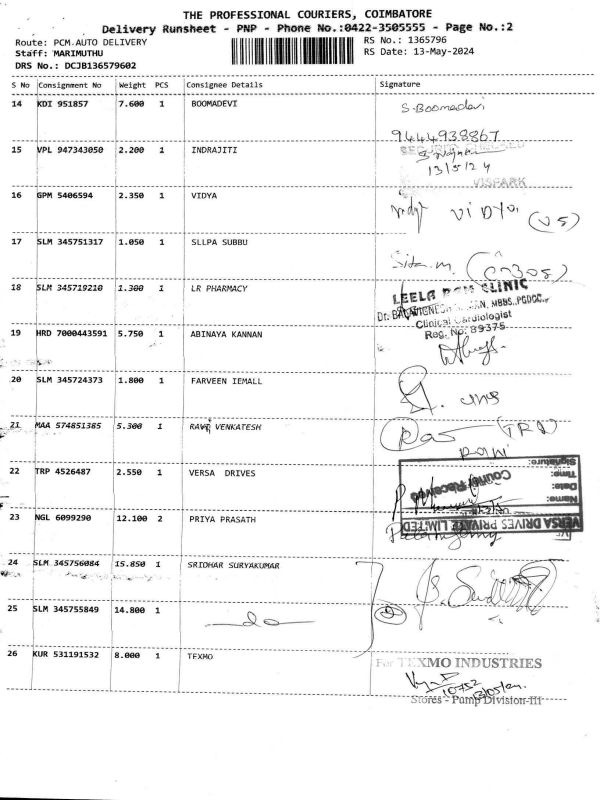 THE PROFESSIONAL COURIERS, COIMBATORE
Delivery Runsheet - PNP - Phone No.:0422-3505555 - Page No.:2
Route: PCM.AUTO DELIVERY
RS No.: 1365796
Staff: MARIMUTHU
RS Date: 13-May-2024
DRS No.: DCJB136579602
S No Consignment No Weight PCS Consignee Details Signature
14 KDI 951857 7.600 1 BOOMADEVI S.Boomadevi
9444938867
15 VPL 947343050 2.200 1 INDRAJITI
13/5/24
VISPARK
16 GPM 5406594 2.350 1 VIDYA
VIDYA
17 SLM 345751317 1.050 1 SLLPA SUBBU
18 SLM 345719210 1.300 1 LR PHARMACY
LEELA CLINIC
MBBS.,PGDCC.,
Clinical Cardiologist
Reg. No: 89375
19 HRD 7000443591 5.750 1 ABINAYA KANNAN
20 SLM 345724373 1.800 1 FARVEEN IEMALL
21 MAA 574851385 5.300 1 RAVI VENKATESH
22 TRP 4526487 2.550 1 VERSA DRIVES
VERSA DRIVES PRIVATE LIMITED
Name:
Date:
Time:
Signature:
Courier Received
23 NGL 6099290 12.100 2 PRIYA PRASATH
24 SLM 345756084 15.850 1 SRIDHAR SURYAKUMAR
25 SLM 345755849 14.800 1 do
2
26 KUR 531191532 8.000 1 TEXMO
For TEXMO INDUSTRIES
10752
Stores - Pump Division-III